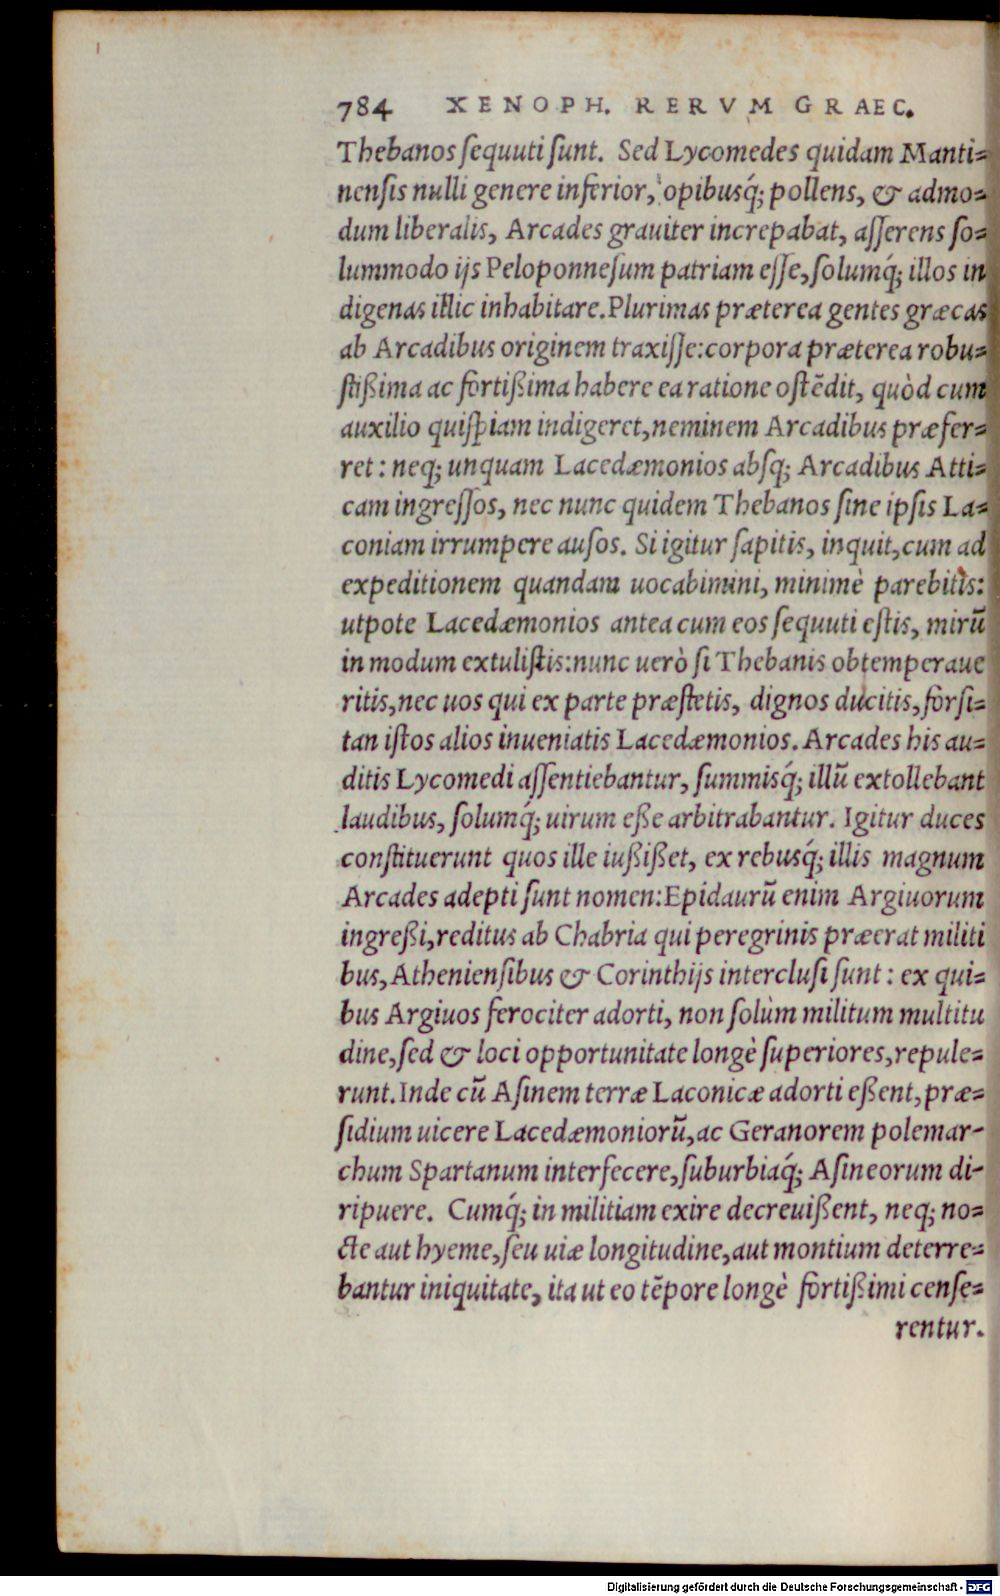 784 XENOPH. RERVM GRAEC.
Thebanos ſequuti ſunt. Sed Lycomedes quidam Manti=
nenſis nulli genere inferior, opibusq́; pollens, & admo=
dum liberalis, Arcades grauiter increpabat, aſſerens ſo=
lummodo ijs Peloponneſum patriam eſſe, ſolumq́; illos in
digenas illic inhabitare. Plurimas præterea gentes græcas
ab Arcadibus originem traxiſſe: corpora præterea robu=
ſtißima ac fortißima habere ea ratione oſtēdit, quòd cum
auxilio quiſpiam indigeret, neminem Arcadibus præfer=
ret: neq; unquam Lacedæmonios abſq; Arcadibus Atti=
cam ingreſſos, nec nunc quidem Thebanos ſine ipſis La=
coniam irrumpere auſos. Si igitur ſapitis, inquit, cum ad
expeditionem quandam uocabimini, minimè parebitis:
utpote Lacedæmonios antea cum eos ſequuti eſtis, mirū
in modum extuliſtis: nunc uerò ſi Thebanis obtemperaue
ritis, nec uos qui ex parte præſtetis, dignos ducitis, forſi=
tan iſtos alios inueniatis Lacedæmonios. Arcades his au=
ditis Lycomedi aſſentiebantur, ſummisq́; illū extollebant
laudibus, ſolumq́; uirum eße arbitrabantur. Igitur duces
conſtituerunt quos ille iußißet, ex rebusq́; illis magnum
Arcades adepti ſunt nomen: Epidaurū enim Argiuorum
ingreßi, reditus ab Chabria qui peregrinis præerat militi
bus, Athenienſibus & Corinthijs intercluſi ſunt: ex qui=
bus Argiuos ferociter adorti, non ſolùm militum multitu
dine, ſed & loci opportunitate longè ſuperiores, repule=
runt. Inde cū Aſinem terræ Laconicæ adorti eßent, præ=
ſidium uicere Lacedæmoniorū, ac Geranorem polemar-
chum Spartanum interfecere, ſuburbiaq́; Aſineorum di-
ripuere. Cumq́; in militiam exire decreuißent, neq; no=
cte aut hyeme, ſeu uiæ longitudine, aut montium deterre=
bantur iniquitate, ita ut eo tēpore longè fortißimi cenſe=
rentur.
Digitalisierung gefördert durch die Deutsche Forschungsgemeinschaft - DFG